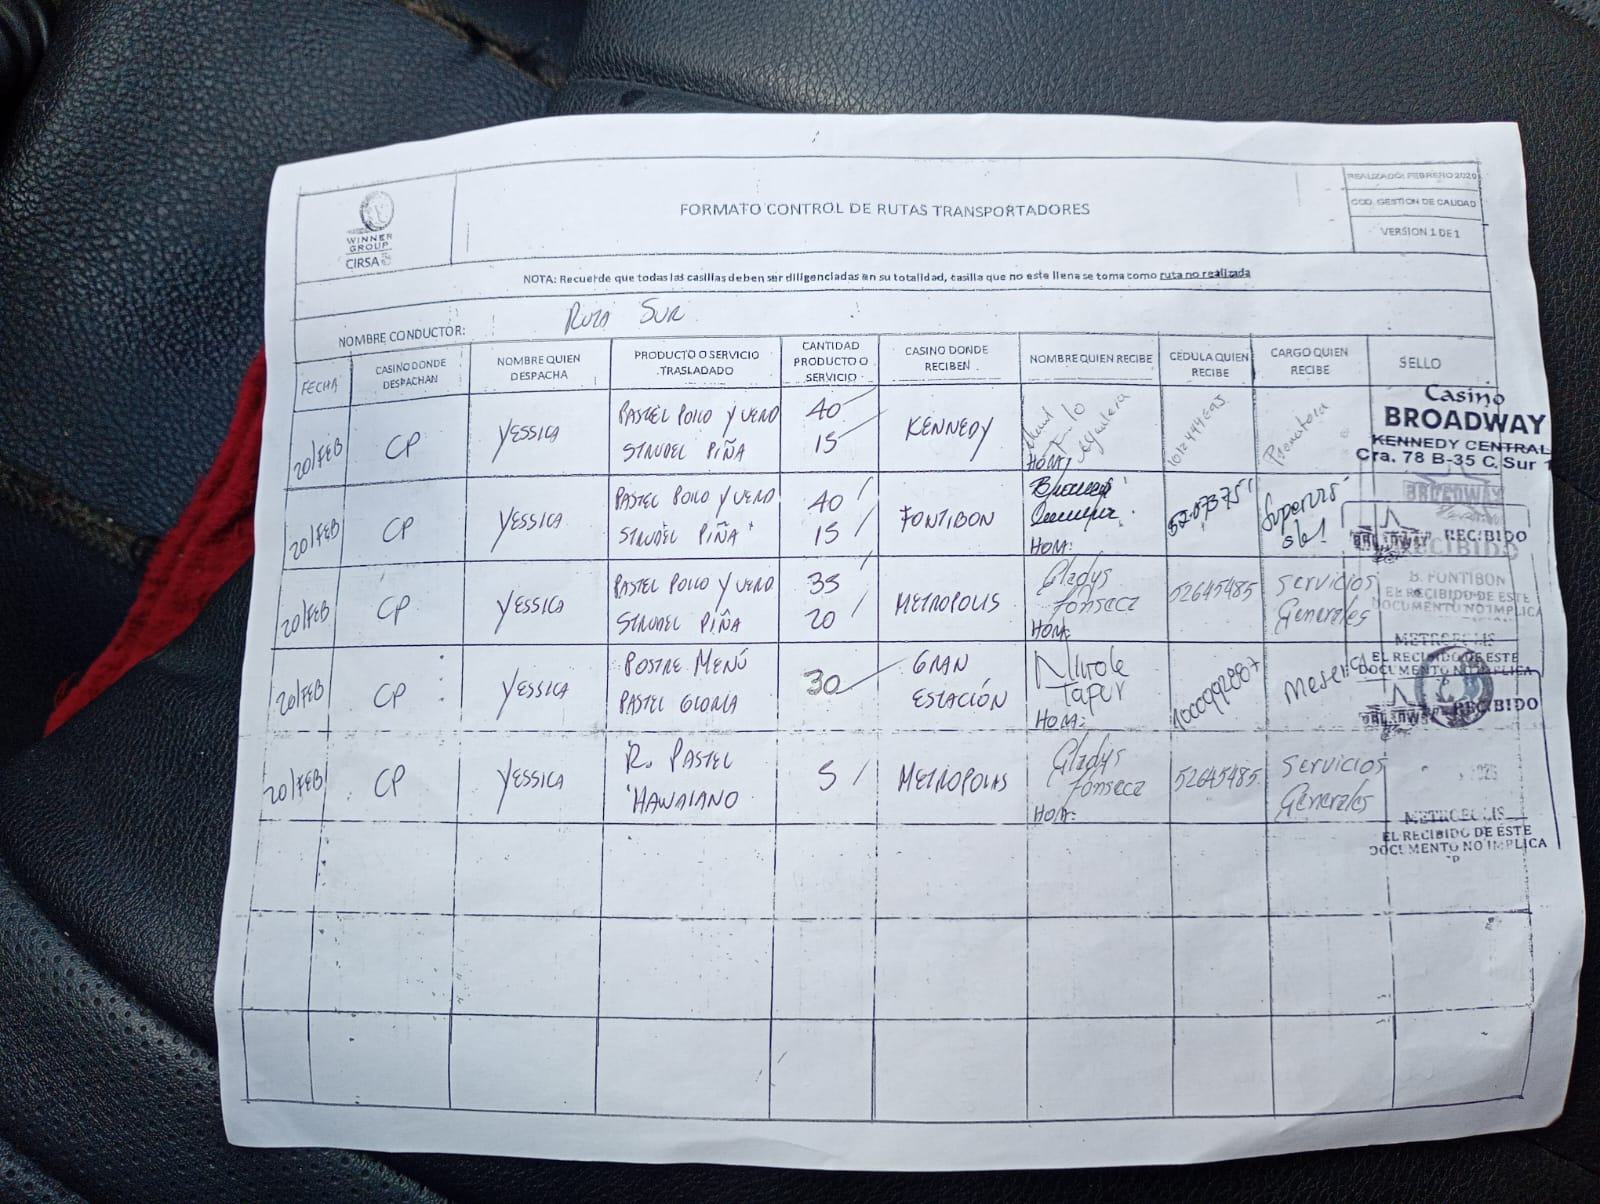 WINNER
GROUP
CIRSA
FORMATO CONTROL DE RUTAS TRANSPORTADORES
REALIZADO: FEBRERO 2020
COD. GESTION DE CALIDAD
VERSION 1 DE 1
NOTA: Recuerde que todas las casillas deben ser diligenciadas en su totalidad, casilla que no este llena se toma como ruta no realizada
NOMBRE CONDUCTOR: RUTA SUR
FECHA
CASINO DONDE DESPACHAN
NOMBRE QUIEN DESPACHA
PRODUCTO O SERVICIO TRASLADADO
CANTIDAD PRODUCTO O SERVICIO
CASINO DONDE RECIBEN
NOMBRE QUIEN RECIBE
CEDULA QUIEN RECIBE
CARGO QUIEN RECIBE
SELLO
20/FEB CP YESSICA PASTEL POLLO Y VERD 40 KENNEDY
STRUDEL PIÑA 15
HORA:
Promotora
Casino
BROADWAY
KENNEDY CENTRAL
Cra. 78 B-35 C. Sur
20/FEB CP YESSICA PASTEL POLLO Y VERD 40 FONTIBON
STRUDEL PIÑA 15
HORA:
BROADWAY
BROADWAY RECIBIDO
RECIBIDO
20/FEB CP YESSICA PASTEL POLLO Y VERD 35 METROPOLIS Gladys Fonseca 52645485 Servicios Generales
STRUDEL PIÑA 20
HORA:
B. FONTIBON
EL RECIBIDO DE ESTE
DOCUMENTO NO IMPLICA
METROPOLIS
EL RECIBIDO DE ESTE
DOCUMENTO NO IMPLICA
20/FEB CP YESSICA POSTRE MENÚ 30 GRAN ESTACIÓN
PASTEL GLORIA
HORA:
RECIBIDO
20/FEB CP YESSICA R. PASTEL 5 METROPOLIS Gladys Fonseca 52645485 Servicios Generales
HAWAIANO
HORA:
METROPOLIS
EL RECIBIDO DE ESTE
DOCUMENTO NO IMPLICA